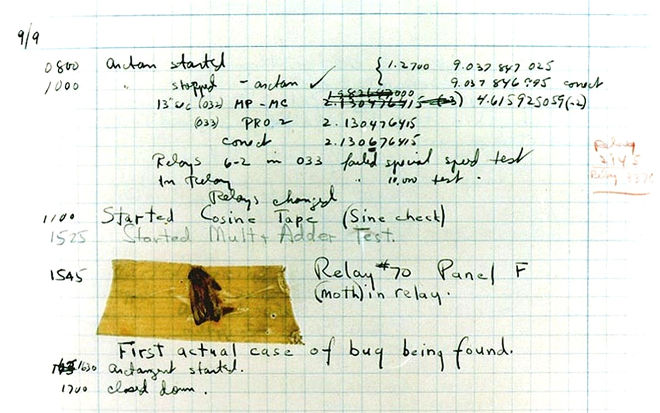 9/9
0800 arctan started { 1.2700 9.037 847 025
1000 " stopped - arctan ✓ 9.037 846 995 correct
13" uc (032) MP - MC 2.130476415 (-3) 4.615925059(-2)
(033) PRO 2 2.130476415
correct 2.130676415
Relays 6-2 in 033 failed special speed test
In Relay " 10,000 test.
Relay
2145
Relay
Relays changed
1100 Started Cosine Tape (Sine check)
1525 Started Mult + Adder Test.
1545 Relay #70 Panel F
(moth) in relay.
First actual case of bug being found.
1630 arctangent started.
1700 closed down.